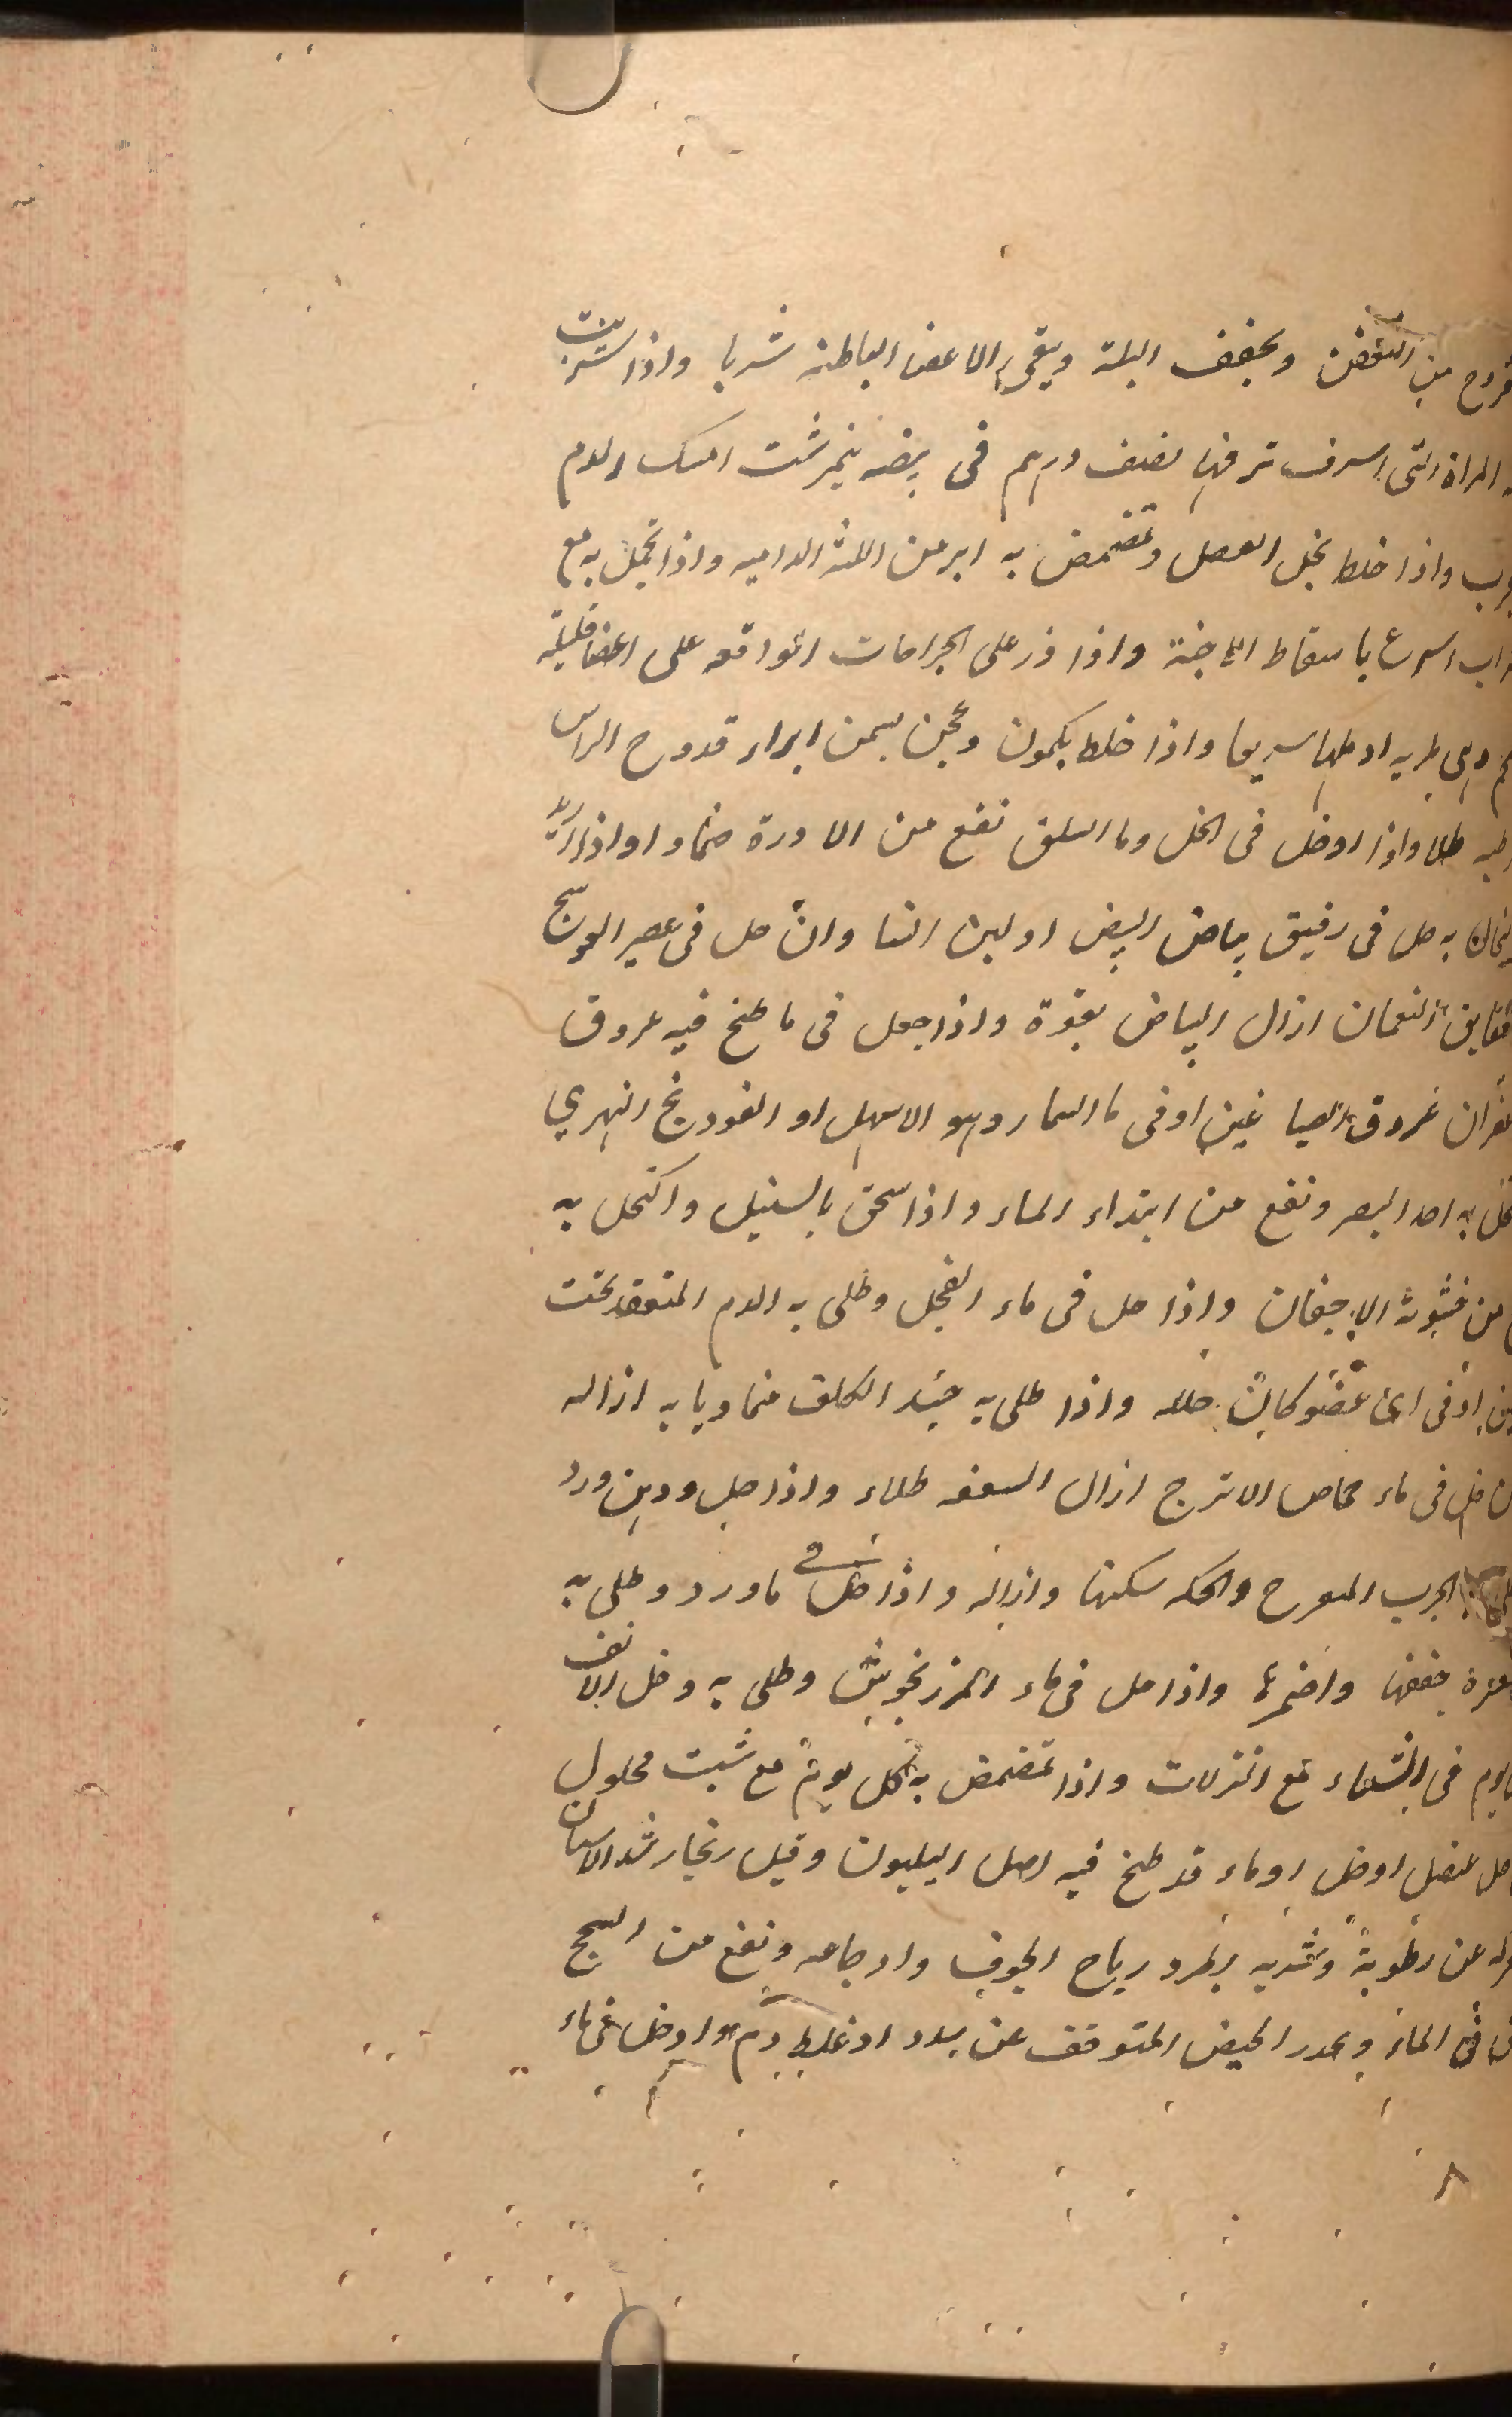 قروح من التعفن ويجفف البلة ويقى الاعضا الباطنه شربا واذا شربت
المراة التى اسرف نزفها نصف درهم فى بيضه نيمرشت امسك الدم
واذا خلط بخل العصل وتمضمض به ابر من اللثه الداميه واذا تحمل به مع
اسرع باسقاط الاجنة واذا ذر على الجراحات الواقعه على اعضا قليلة
وهى طريه ادملها سريعا واذا خلط بكمون وعجن بسمن ابراء قروح الراس
طلا واذا ادخل فى الخل وما السلق نفع من الادرة ضمادا واذا اريد
به حل فى رقيق بياض البيض او لبن النسا وان حل فى عصير العوسج
النعمان ازال البياض بقوة واذا جعل فى ما طبخ فيه عروق
عروق الصباغين او فى ما السمار وهو الاسهل او الفودنج النهري
به احد البصر ونفع من ابتداء الماء واذا سحق بالسنبل واكتحل به
من خشونة الاجفان واذا حل فى ماء الفجل وطلى به الدم المنعقد تحت
او فى اى عضو كان حلله واذا طلى به حيند الكلف متماديا به ازاله
حل فى ماء حماض الاترج ازال السعفه طلاء واذا حل ودهن ورد
الجرب المتقرح والحكه سكنها وازاله واذا حل فى ماورد وطلى به
جففها واضمرها واذا حل فى ماء المرزنجوش وطلى به دخل الانف
فى الشتاء منع النزلات واذا تمضمض به كل يوم مع شبت محلول
عنصل او خل او ماء قد طبخ فيه اصل الهليون وقيل زنجار شد الاسنان
عن رطوبة وشربه يطرد رياح الجوف واوجاعه ونفع من السحج
فى الماء ويحدر الحيض المتوقف عن سدد او غلظ دم وادخل فى ماء